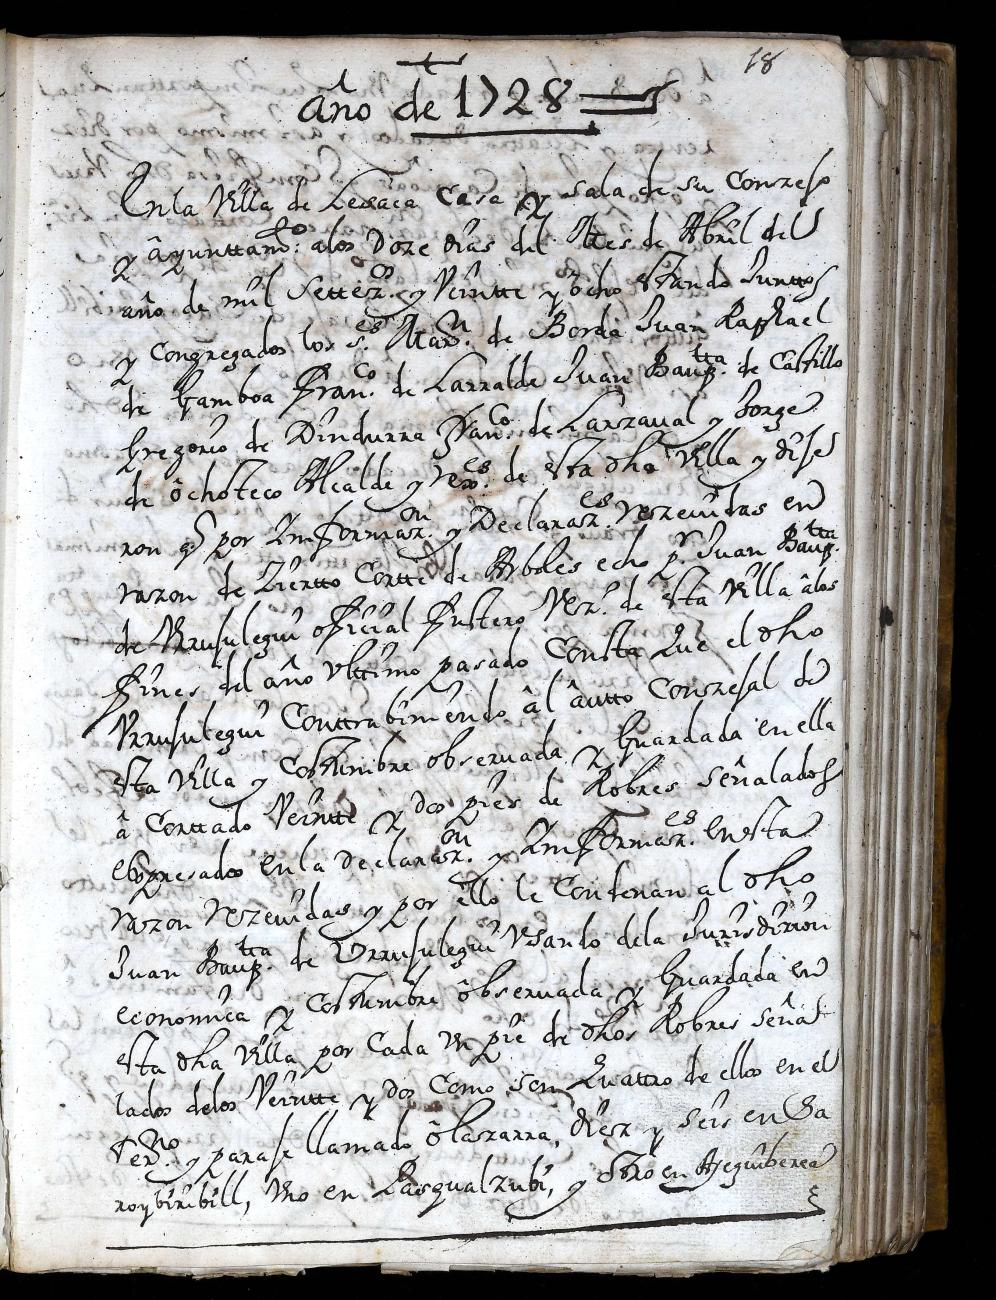 18
año de 1728
En la Villa de Lessaca Casa y sala de su Conzejo
y ayunttam.to alos Doze dias del Mes de Abril del
año de mil Settez.os y Veintte y ocho estando Junttos
y Congregados los s.es Mar.n de Borda Juan Raphael
de Gamboa Fran.co de Larralde Juan Baup.tta de Castillo
Gregorio de Dindurra Fran.co de Lanzaval y Jorge
de ôchoteco Alcalde y rex.es de esta dha Villa y dije
ron q por Informaz.on y Declaraz.es rezeuidas en
razon de Zierto Cortte de Arboles echo p.r Juan Baup.tta
de Vrrusulegui oficial fustero Vez.o de esta Villa âlos
fines del año Vlttimo pasado Consta Que el dho
Vrrusulegui Conttrabiniendo âl âutto Conzejal de
esta Villa y Costtumbre obseruada y Guardada en ella
â Corttado Veintte y dos pies de Robres señalados
expresados en la Declaraz.on y Informaz.es en esta
razon rezeuidas y por ello le Condenan al dho
Juan Baup.tta de Vrrusulegui Vsando dela Jurisdizion
economica y Costtumbre ôbseruada y Guardada en
esta dha Villa por Cada Vn pie de dhos Robres señal
lados delos Veintte y dos Como son Quattro de ellos en el
terz.no y paraje llamado ôlaszarra, diez y seis en Sa
roybiribill, Vno en Lasqualzubi, y otro en Aseguiberea